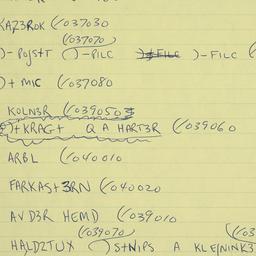 KAZ3ROK (/037030
(/037070)
)-POJST )-PILC )-FILC (
)+ MIC (/037080
KOLN3R (/039050
)+KRAG+ Q A HART3R (/039060
ARBL (/040010
FARKAS+3RN (/040020
AVD3R HEMD (/039010
(/039070) (/03
HALDZTUX )S+NIPS A KLEJNINK3